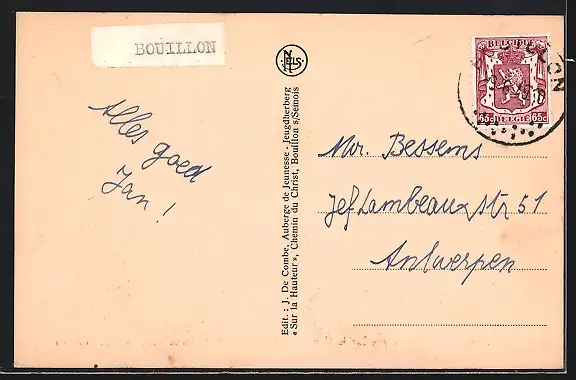 BOUILLON
Alles goed
Jan!
NELS
Edit. : J. De Combe, Auberge de Jeunesse - Jeugdherberg
« Sur la Hauteur », Chemin du Christ, Bouillon s/Semois
BELGIQUE
65c BELGIË 65c
Mr. Bessems
Jef Lambeaux str 51
Antwerpen